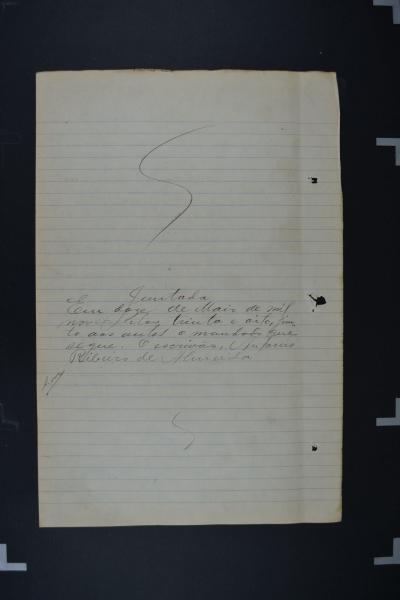 Juntada
Em doze de Maio de mil
novecentos trinta e oito, jun
to aos autos o mandado que
segue. O escrivão,
Ribeiro de Almeida